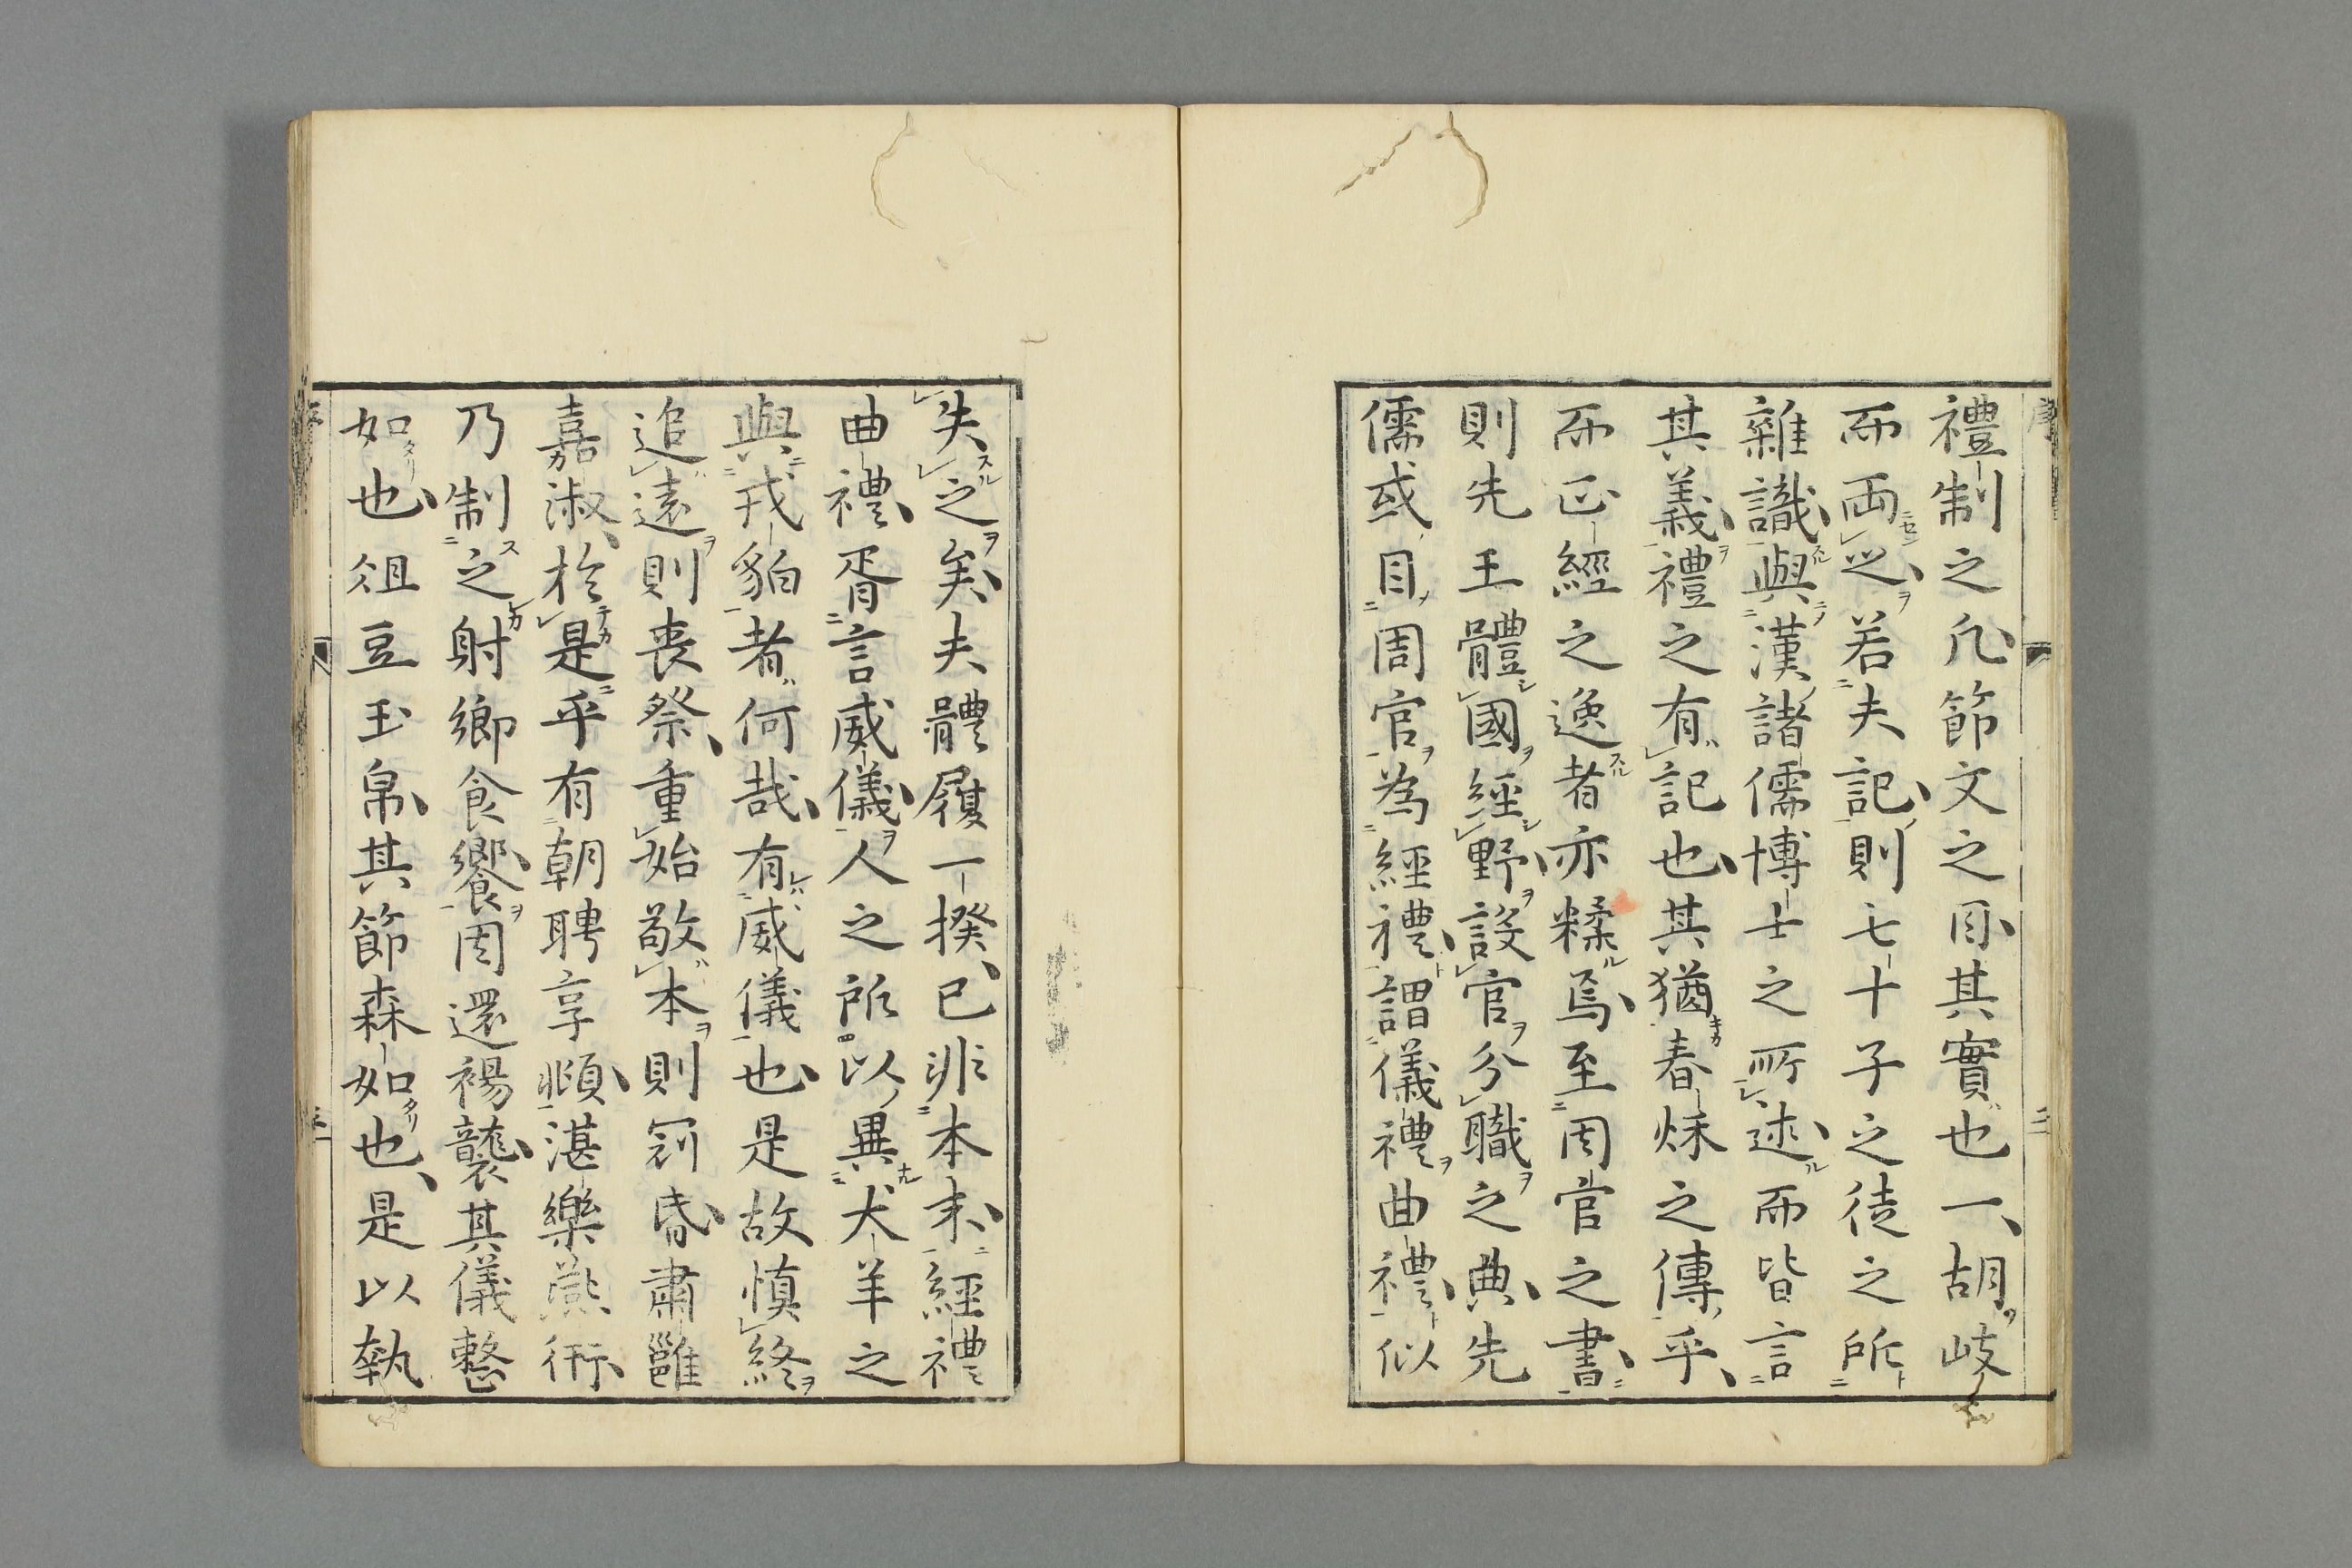 禮制之凡節文之目其實也一胡岐
而兩之若夫記則七十子之徒之所
雜識與漢諸儒博士之所述而皆言
其義禮之有記也其猶春秌之傳乎
而正經之逸者亦糅焉至周官之書
則先王體國經野設官分職之典先
儒或目周官為經禮謂儀禮曲禮似
失之矣夫體履一揆已非本末經禮
曲禮胥言威儀人之所以異犬羊之
與戎貊者何哉有威儀也是故慎終
追遠則喪祭重始敬本則冠昏肅雝
嘉淑於是乎有朝聘享頫湛樂燕衎
乃制之射鄉食饗周還裼襲其儀整
如也俎豆玉帛其節森如也是以執